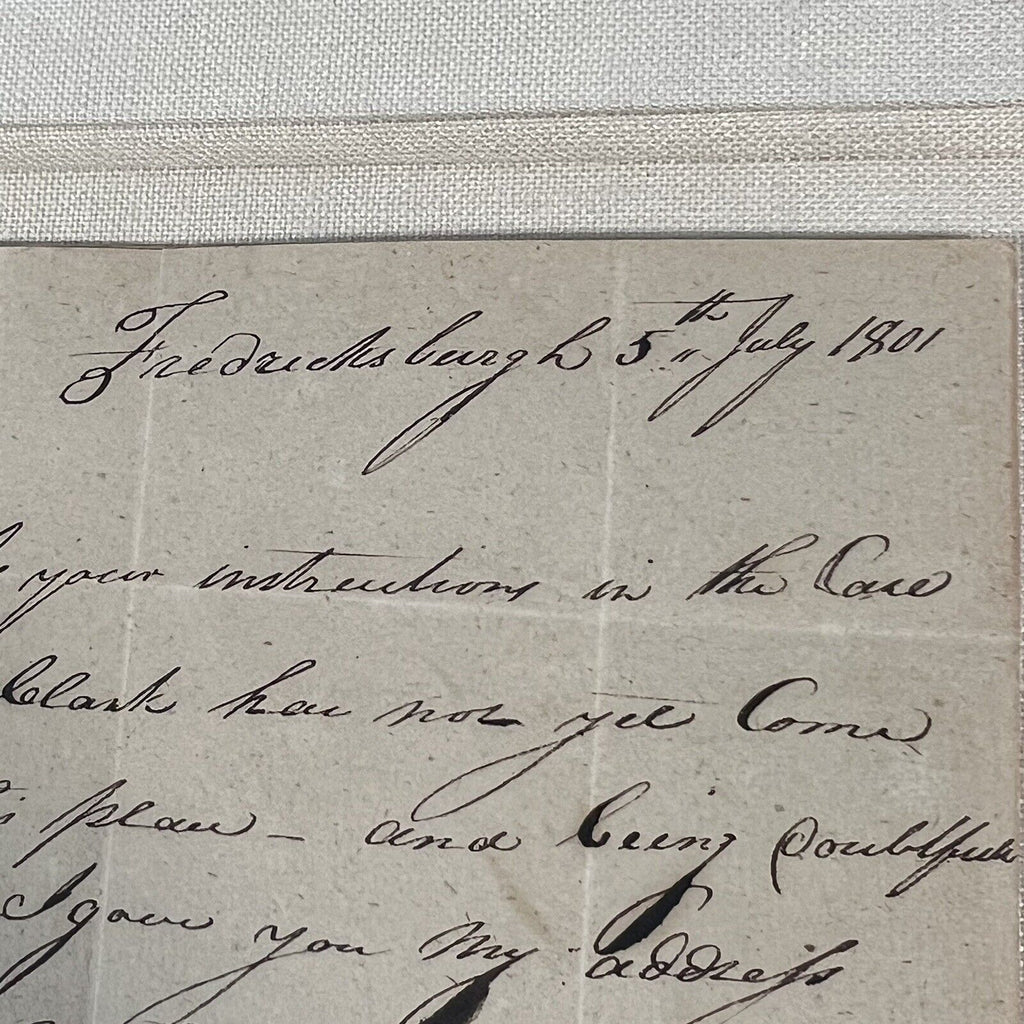 Fredericksburgh 5th July 1801
your instructions in the Case
Clark has not yet Come
plan – and being doubtful
I gave you my address